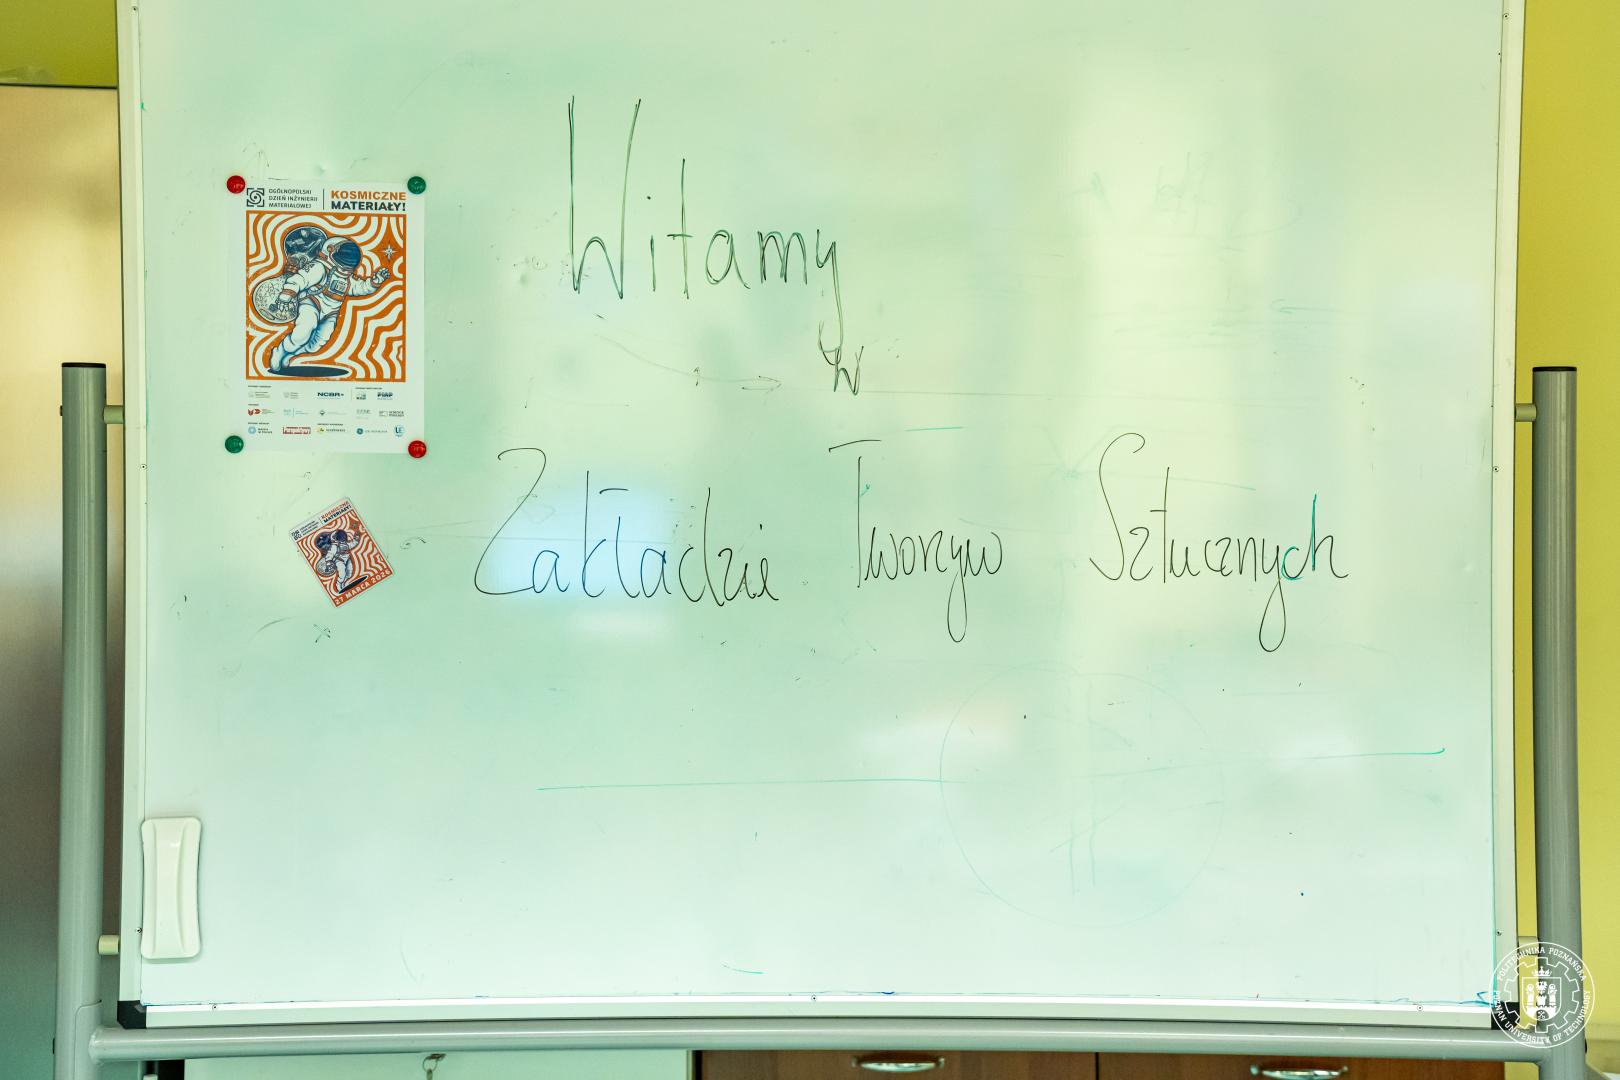 Witamy
w
Zakładzie Tworzyw Sztucznych
OGÓLNOPOLSKI
DZIEŃ INŻYNIERII
MATERIAŁOWEJ
KOSMICZNE
MATERIAŁY!
NCBR
PIAP
KOSMICZNE
MATERIAŁY!
27 MARCA 2026
POLITECHNIKA POZNAŃSKA
POZNAN UNIVERSITY OF TECHNOLOGY